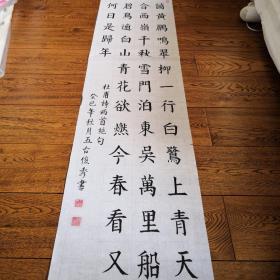 箇黃鸝鳴翠柳一行白鷺上青天
含西嶺千秋雪門泊東吳萬里船
碧鳥逾白山青花欲燃今春看又
何日是歸年
杜甫詩兩首絕句
癸巳年秋月五台俊秀書